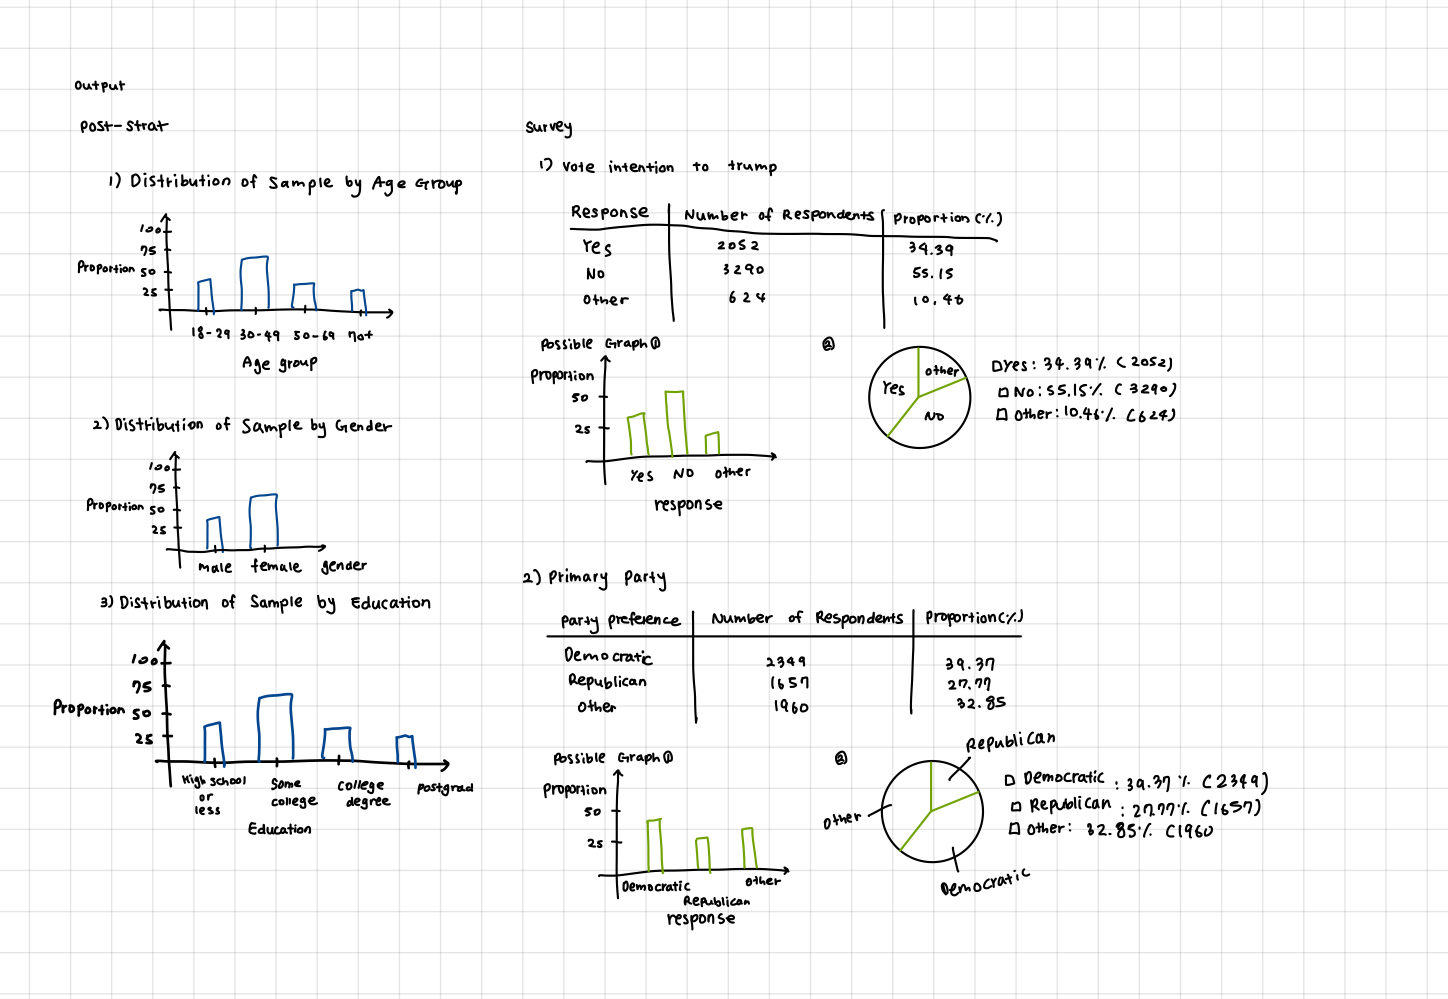 Output
Post-Strat
1) Distribution of Sample by Age Group
100
75
Proportion 50
25
18-29 30-49 50-69 70+
Age group
2) Distribution of Sample by Gender
100
75
Proportion 50
25
male female gender
3) Distribution of Sample by Education
100
75
Proportion 50
25
High school or less
Some college
college degree
postgrad
Education
Survey
1) Vote intention to trump
Response Number of Respondents Proportion (%)
Yes 2052 34.39
No 3290 55.15
Other 624 10.46
Possible Graph ①
Proportion
50
25
Yes NO other
response
②
Yes other NO
Yes: 34.39% (2052)
No: 55.15% (3290)
Other: 10.46% (624)
2) Primary Party
Party preference Number of Respondents Proportion (%)
Democratic 2349 39.37
Republican 1657 27.77
Other 1960 32.85
Possible Graph ①
Proportion
50
25
Democratic
Republican
Other
response
②
Republican
Other
Democratic
Democratic : 39.37% (2349)
Republican : 27.77% (1657)
Other: 32.85% (1960